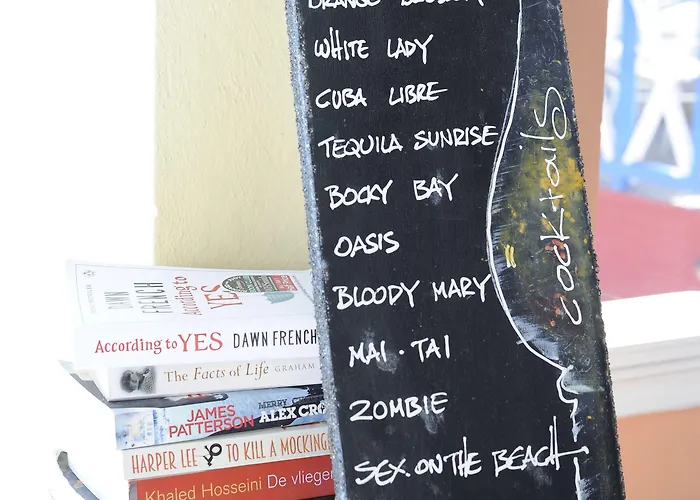 WHITE LADY
CUBA LIBRE
TEQUILA SUNRISE
BOCKY BAY
OASIS
BLOODY MARY
MAI·TAI
ZOMBIE
SEX ON THE BEACH
cocktails
DAWN FRENCH
According to YES
According to YES DAWN FRENCH
The Facts of Life GRAHAM
JAMES PATTERSON
ALEX CRO
HARPER LEE TO KILL A MOCKING
Khaled Hosseini De vlieger